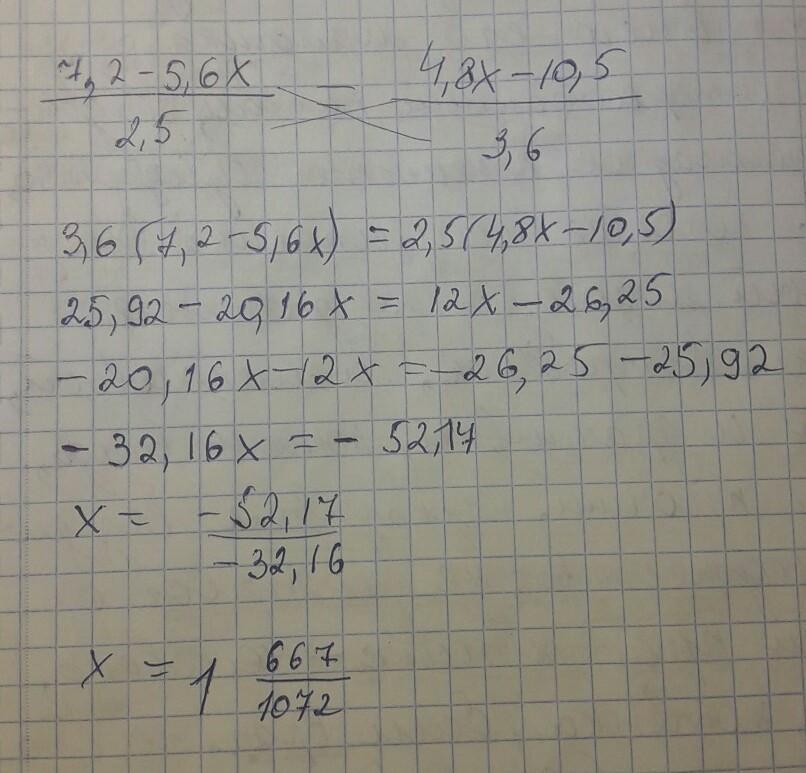 7,2-5,6x = 4,8x-10,5
2,5 3,6
3,6(7,2-5,6x) = 2,5(4,8x-10,5)
25,92-20,16x = 12x-26,25
-20,16x-12x = -26,25-25,92
-32,16x = -52,17
x = -52,17
-32,16
x = 1 667
1072